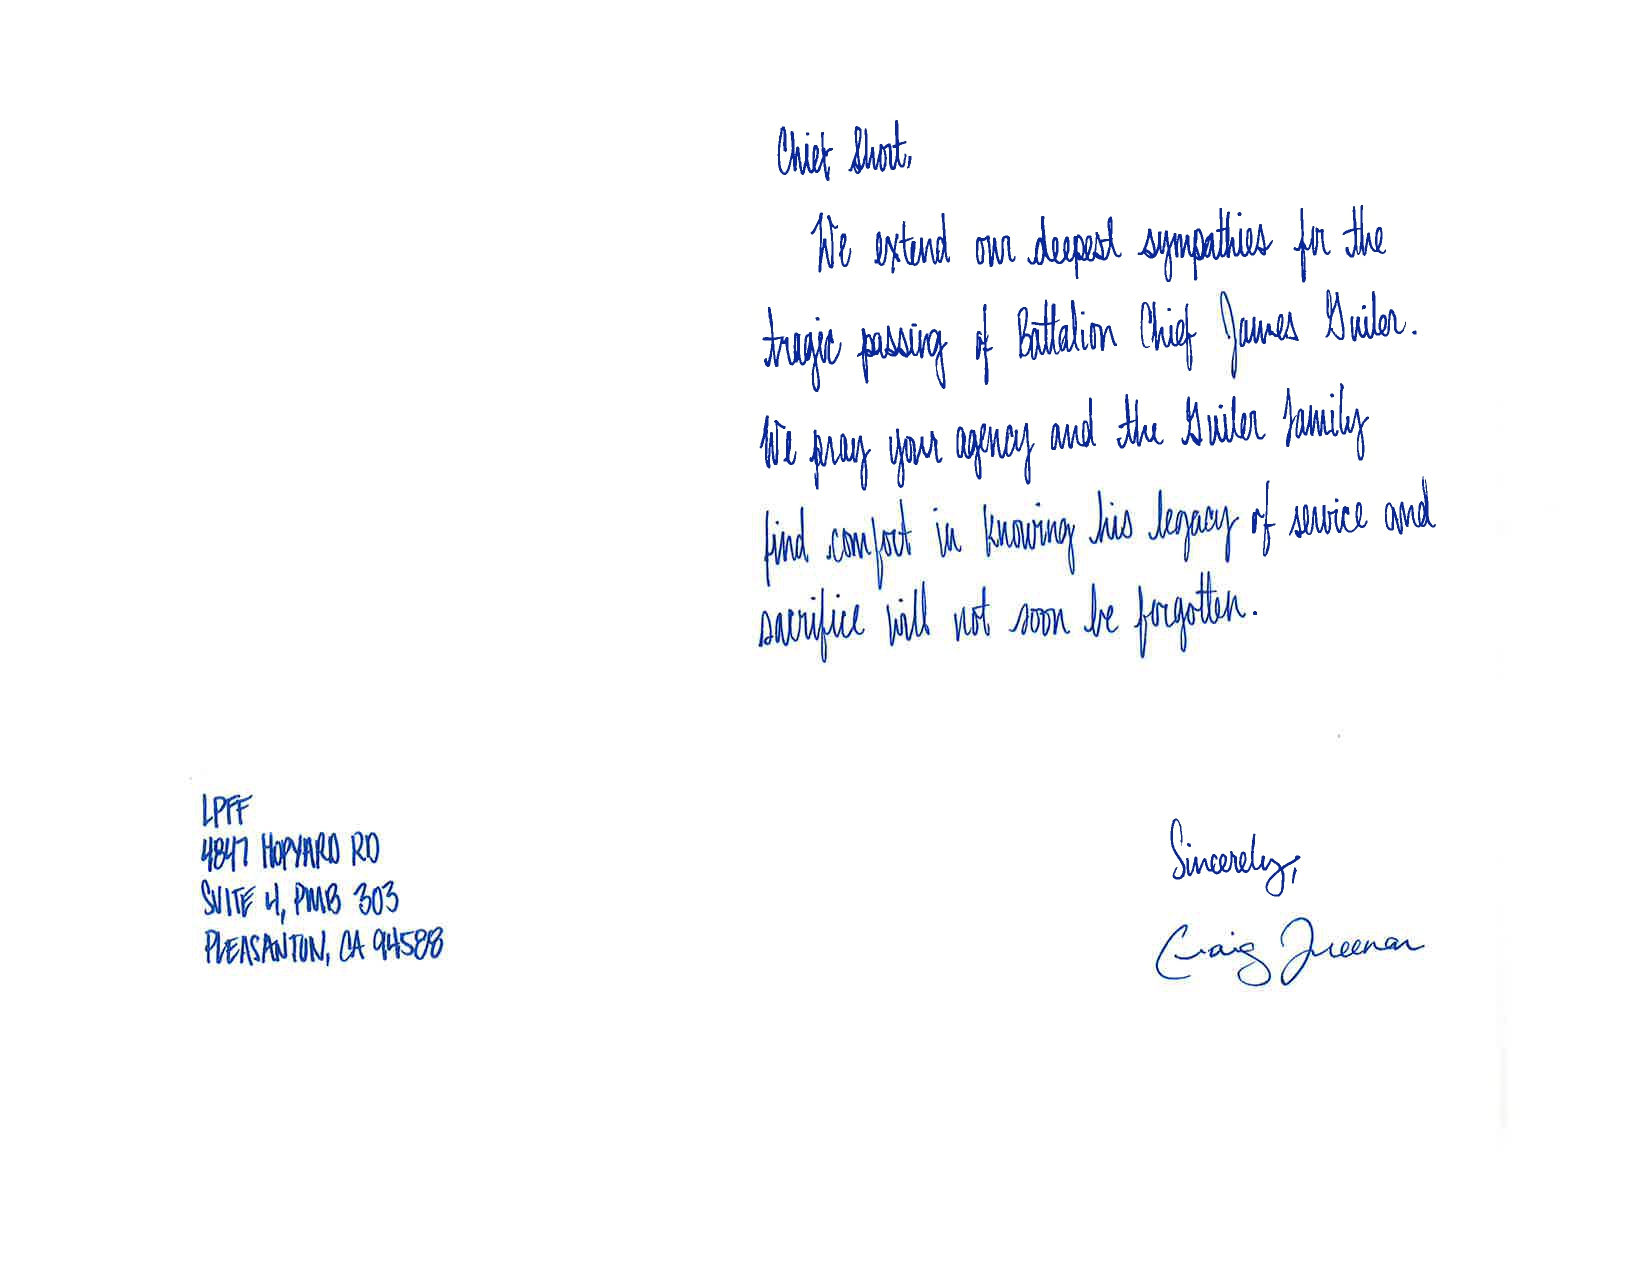 Chief Short,
We extend our deepest sympathies for the
tragic passing of Battalion Chief James Guiler.
We pray your agency and the Guiler family
find comfort in knowing his legacy of service and
sacrifice will not soon be forgotten.
LPFF
4847 HOPYARD RD
SUITE 4, PMB 303
PLEASANTON, CA 94588
Sincerely,
Craig Freeman